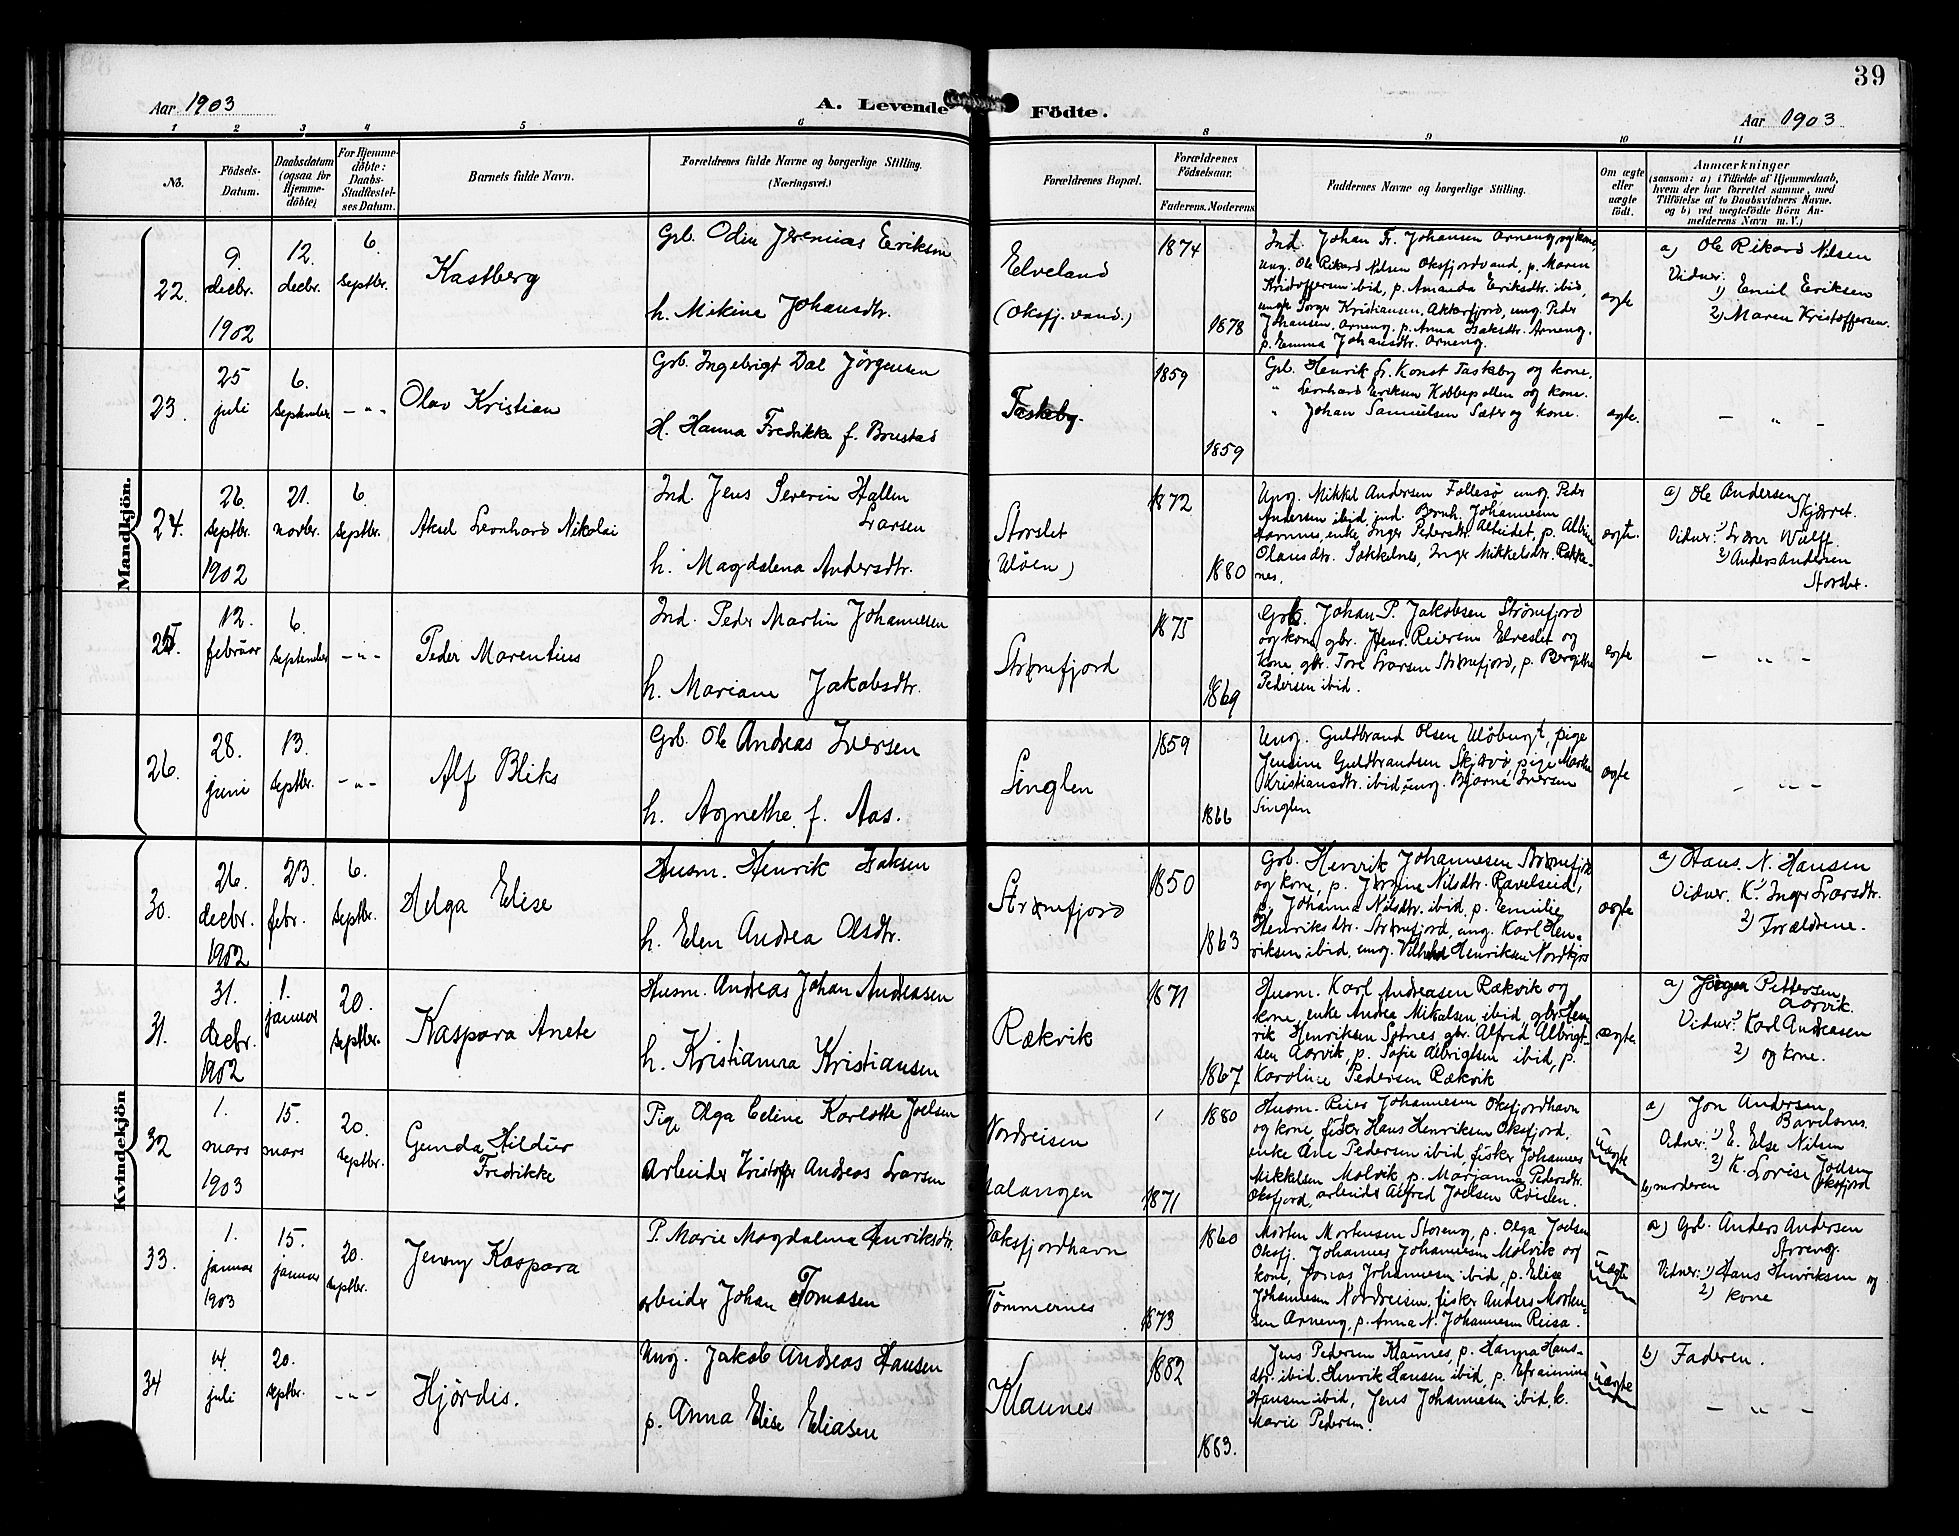 39
Aar 1903
A. Levende Födte.
Aar 1903
1 2 3 4 5 6 8 9 10 11
No.
Födsels-Datum.
Daabsdatum (ogsaa for Hjemme-döbte)
For Hjemme-döbte: Daabs-Stadfæstel-ses Datum.
Barnets fulde Navn.
Forældrenes fulde Navne og borgerlige Stilling.
(Næringsvei.)
Forældrenes Bopæl.
Forældrenes Födselsaar.
Faderens. Moderens.
Faddernes Navne og borgerlige Stilling.
Om ægte eller uægte födt.
Anmærkninger
(saasom: a) i Tilfælde af Hjemmedaab,
hvem der har forrettet samme, med
Tilföielse af to Daabsvidners Navne.
og b) ved uægtefödte Börn An-
melderens Navn m. V.)
Mandkjön.
22.
9. decbr. 1902
12. decbr.
6. septbr.
Kastberg
Grb. Odin Jeremias Eriksen
h. Mikine Johansdtr.
Elveland
(Oksfj. vand.)
1874
1878
Ind. Johan Fr. Johansen Arneng og kone
ung. Ole Rikard Nilsen Oksfjordvand, p. Maren
Kristoffersen ibid, p. Amanda Eriksdtr. ibid,
ungk Torger Kristiansen, Akkarfjord, ung. Peder
Johansen, Arneng. p. Anna Isaksdtr. Arneng.
p. Emma Johansdtr. Arneng.
ægte
a) Ole Rikard Nilsen
Vidner: 1) Emil Eriksen
2) Maren Kristoffersen.
23.
25 juli
6. september
- " -
Olav Kristian
Grb. Ingebrigt Dal Jörgensen
H. Hanna Fredrikke f. Brustad
Taskeby.
1859
1859
Grb. Henrik Fr. Konst Taskeby og kone.
" Leonhard Eriksen Kobbepollen og kone.
" Johan Samuelsen Sæter og kone.
ægte.
- " -
24.
26 septbr. 1902
21. novbr.
6. septbr.
Aksel Leonhard Nikolai
Ind. Jens Severin Hallen
Larsen
h. Magdalena Andersdtr.
Storslet
(Ulöen)
1872
1880
Ung. Mikkel Andersen Follesö ung. Peder
Andersen ibid, ind. Bernh. Johannesen
Hamnes, enke Inger Pedersdtr. Alteidet, p. Albine
Olausdtr. Sokkelnes, Inger Mikkelsdtr. Rakke-
nes.
ægte.
a) Ole Andersen
Skjærvet.
Vidner: 1) Lærer Wulff
2) Anders Andersen
Storslet.
25.
12. februar
6. september
- " -
Peder Marentius
Ind. Peder Martin Johannesen
h. Mariane Jakobsdtr.
Strømfjord
1875
1869
Grb. Johan P. Jakobsen Strømfjord
og kone, gbr. Hans Reiersen Elveslet og
kone, gbr. Tore Larsen Strømfjord, p. Bergitte
Pedersen ibid.
ægte
- " -
26.
28. juni
13. septbr.
- " -
Alf Bliks
Grb. Ole Andreas Iversen
h. Agnethe f. Aas.
Singlen
1859
1866
Ung. Guldbrand Olsen Ulöbugt, pige
Jensine Guldbrandsen Skjævö, pige Marthe
Kristiansdtr. ibid, ung. Bjarne Iversen
Singlen
ægte
- " -
Kvindekjön
30.
26. decbr. 1902
23. febr.
6. septbr.
Helga Elise
Husm. Henrik Isaksen
h. Elen Andrea Olsdtr.
Strømfjord
1850
1863
Grb. Henrik Johannesen Strømfjord
og kone, p. Jörgine Nilsdtr. Ravelseid,
p. Johanna Nilsdtr. ibid, p. Emilie
Henriksdtr. Strømfjord, ung. Karl Hen-
riksen ibid, ung. Vilhelm Henriksen Nordkjos
ægte
a) Hans N. Hansen
Vidner. K. 1) Inger Larsdtr.
2) Forældrene.
31.
31. decbr. 1902
1. januar
20. septbr.
Kaspara Anete
Husm. Andreas Johan Andreasen
h. Kristianna Kristiansen
Rækvik
1871
1867
Husm. Karl Andreasen Rækvik og
kone, enke Andrea Mikalsen ibid, gbr. Hen-
rik Henriksen Sotnes, gbr. Alfred Albrigt-
sen Aarvik, p. Sofie Albrigtsen ibid, p.
Karoline Pedersen Rækvik
ægte
a) Jörgen Pettersen
Aarvik.
Vidner: 1) Karl Andreasen
2) og kone.
32
1. mars 1903
15. mars
20. septbr.
Gunda Hildur
Fredrikke
Pige Olga Celine Karlotte Joelsen
Arbeider Kristoffer Andreas Larsen
Nordreisen
Malangen
1880
1871
Husm. Reier Johannesen Oksfjordhavn
og kone, fisker Hans Henriksen Oksfjord,
enke Ane Pedersen ibid, fisker Johannes
Mikkelsen Molvik p. Marjanna Pedersdtr.
Oksfjord, arbeider Alfred Joelsen Reisen.
uægte
a) Jon Andersen
Bavelsnes.
Vidner: 1) E. Else Nilsen
2) K. Lovise Joelsen
Oksfjord
b) moderen
33.
1. januar 1903
15. januar
20. septbr.
Jenny Kaspara
P. Marie Magdalena Henriksdtr.
arbeider Johan Tomasen
Oaksfjordhavn
Tömmernes
1860
1873
Morten Mortensen Storeng, p. Olga Joelsen
Oksfj. Johannes Johannesen Molvik og
kone, Jonas Johannesen ibid, p. Elise
Johannesen Nordreisen, fisker Anders Morten-
sen Arneng, p. Anna N. Johannesen Reisa.
uægte
a) Grb. Anders Andersen
Storeng.
Vidner: 1) Hans Henriksen og
2) kone
34
4. juli
20. septbr.
- " -
Hjördis.
Ung. Jakob Andreas Hansen
p. Anna Elise Eliasen
Maunes
1882
1883.
Jens Pedersen Maunes, p. Hanna Hans-
dtr. ibid. Henrik Hansen ibid, p. Efraimine
Hansen ibid, Jens Johannesen ibid, k.
Marie Pedersen.
uægte
b) Faderen.
- " - -